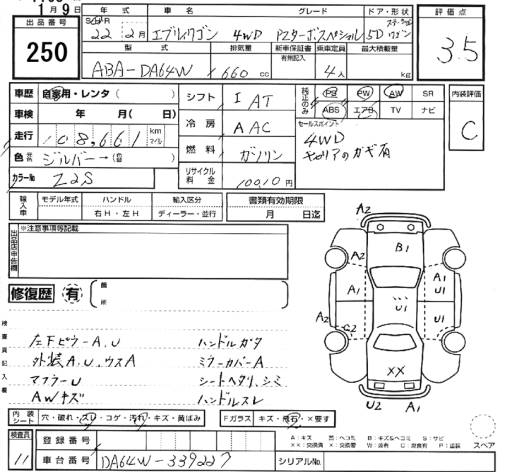 1月9日
出品番号
250
年式 車名 グレード ドア・形状
S H R
22 2月 エブリィワゴン 4WD PZターボスペシャル 5D ワゴン
型式 排気量 新車保証書 有無記入 乗車定員 最大積載量
ABA-DA64W 660 cc 4人 kg
評価点
3.5
車歴 自家用・レンタ( )
車検 年 月( 日)
走行 108,661 km マイル
色 シルバー→
カラーNo Z2S
シフト I AT
冷房 AAC
燃料 ガソリン
リサイクル料金 10010円
純正のみ PS PW AW SR
ABS エアB TV ナビ
セールスポイント
4WD
内装評価
C
輸入車 モデル年式 ハンドル 輸入区分 書類有効期限
右H・左H ディーラー・並行 月 日迄
※注意事項等記載
修復歴 有 箇所
A2
A2 B1 A1
A1 U1 U1 U1
A2 C2
XX
U2 A1
検査員記入欄
左下ピラーA.U ハンドルガタ
外装A.U.ウスA ミラーカバーA
マフラーU シートヘタリ,シミ
AWキズ ハンドルスレ
内装シート 穴・破れ・スレ・コゲ・汚れ・キズ・黄ばみ
Fガラス キズ・飛石・×要す
検査員 11
登録番号
車台番号 DA64W-339227
シリアルNo.
A:キズ U:ヘコミ B:キズ&ヘコミ S:サビ
スペア